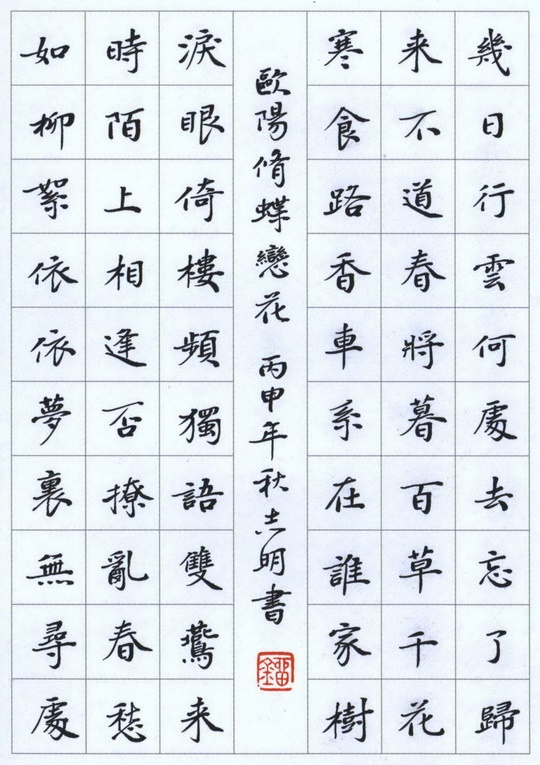 幾日行雲何處去忘了歸
来不道春將暮百草千花
寒食路香車系在誰家樹
歐陽脩蝶戀花 丙申年秋志明書
淚眼倚樓頻獨語雙鶯来
時陌上相逢否撩亂春愁
如柳絮依依夢裏無尋處